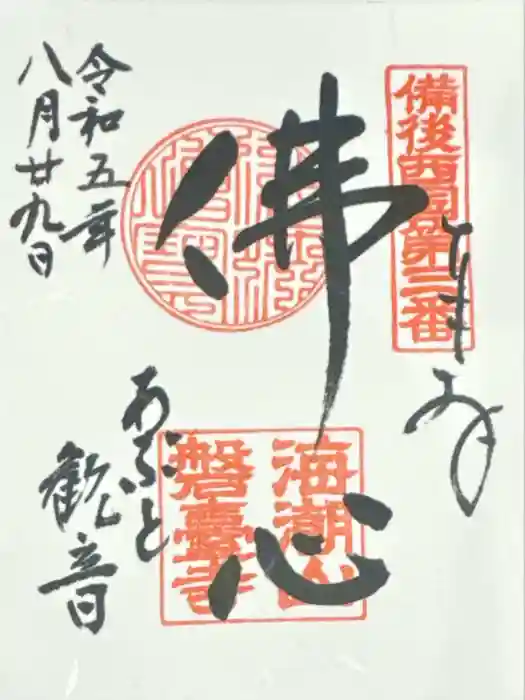 備後西国第三番
佛心
海潮山
磐臺寺
あぶと
観音
令和五年
八月廿九日